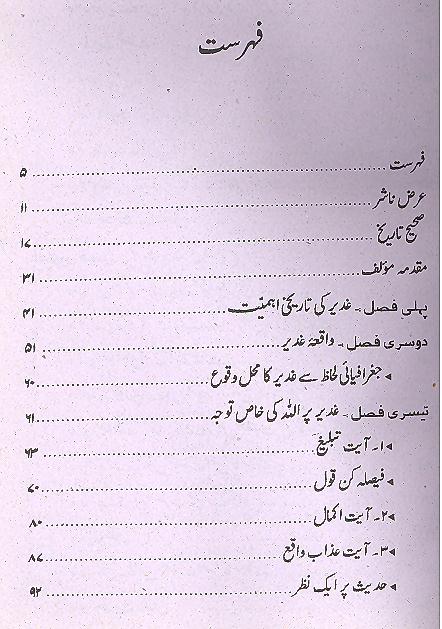 فہرست
فہرست ........ ۵
عرض ناشر ........ ۱۱
صحیح تاریخ ........ ۱۷
مقدمہ مؤلف ........ ۳۱
پہلی فصل۔ غدیر کی تاریخی اہمیّت ........ ۴۱
دوسری فصل۔ واقعۂ غدیر ........ ۵۱
◂ جغرافیائی لحاظ سے غدیر کا محل وقوع ........ ۶۰
تیسری فصل۔ غدیر پر اللہ کی خاص توجہ ........ ۶۱
◂۱۔ آیت تبلیغ ........ ۶۳
◂ فیصلہ کن قول ........ ۷۰
◂۲۔ آیت اکمال ........ ۸۰
◂۳۔ آیت عذاب واقع ........ ۸۷
◂ حدیث پر ایک نظر ........ ۹۲